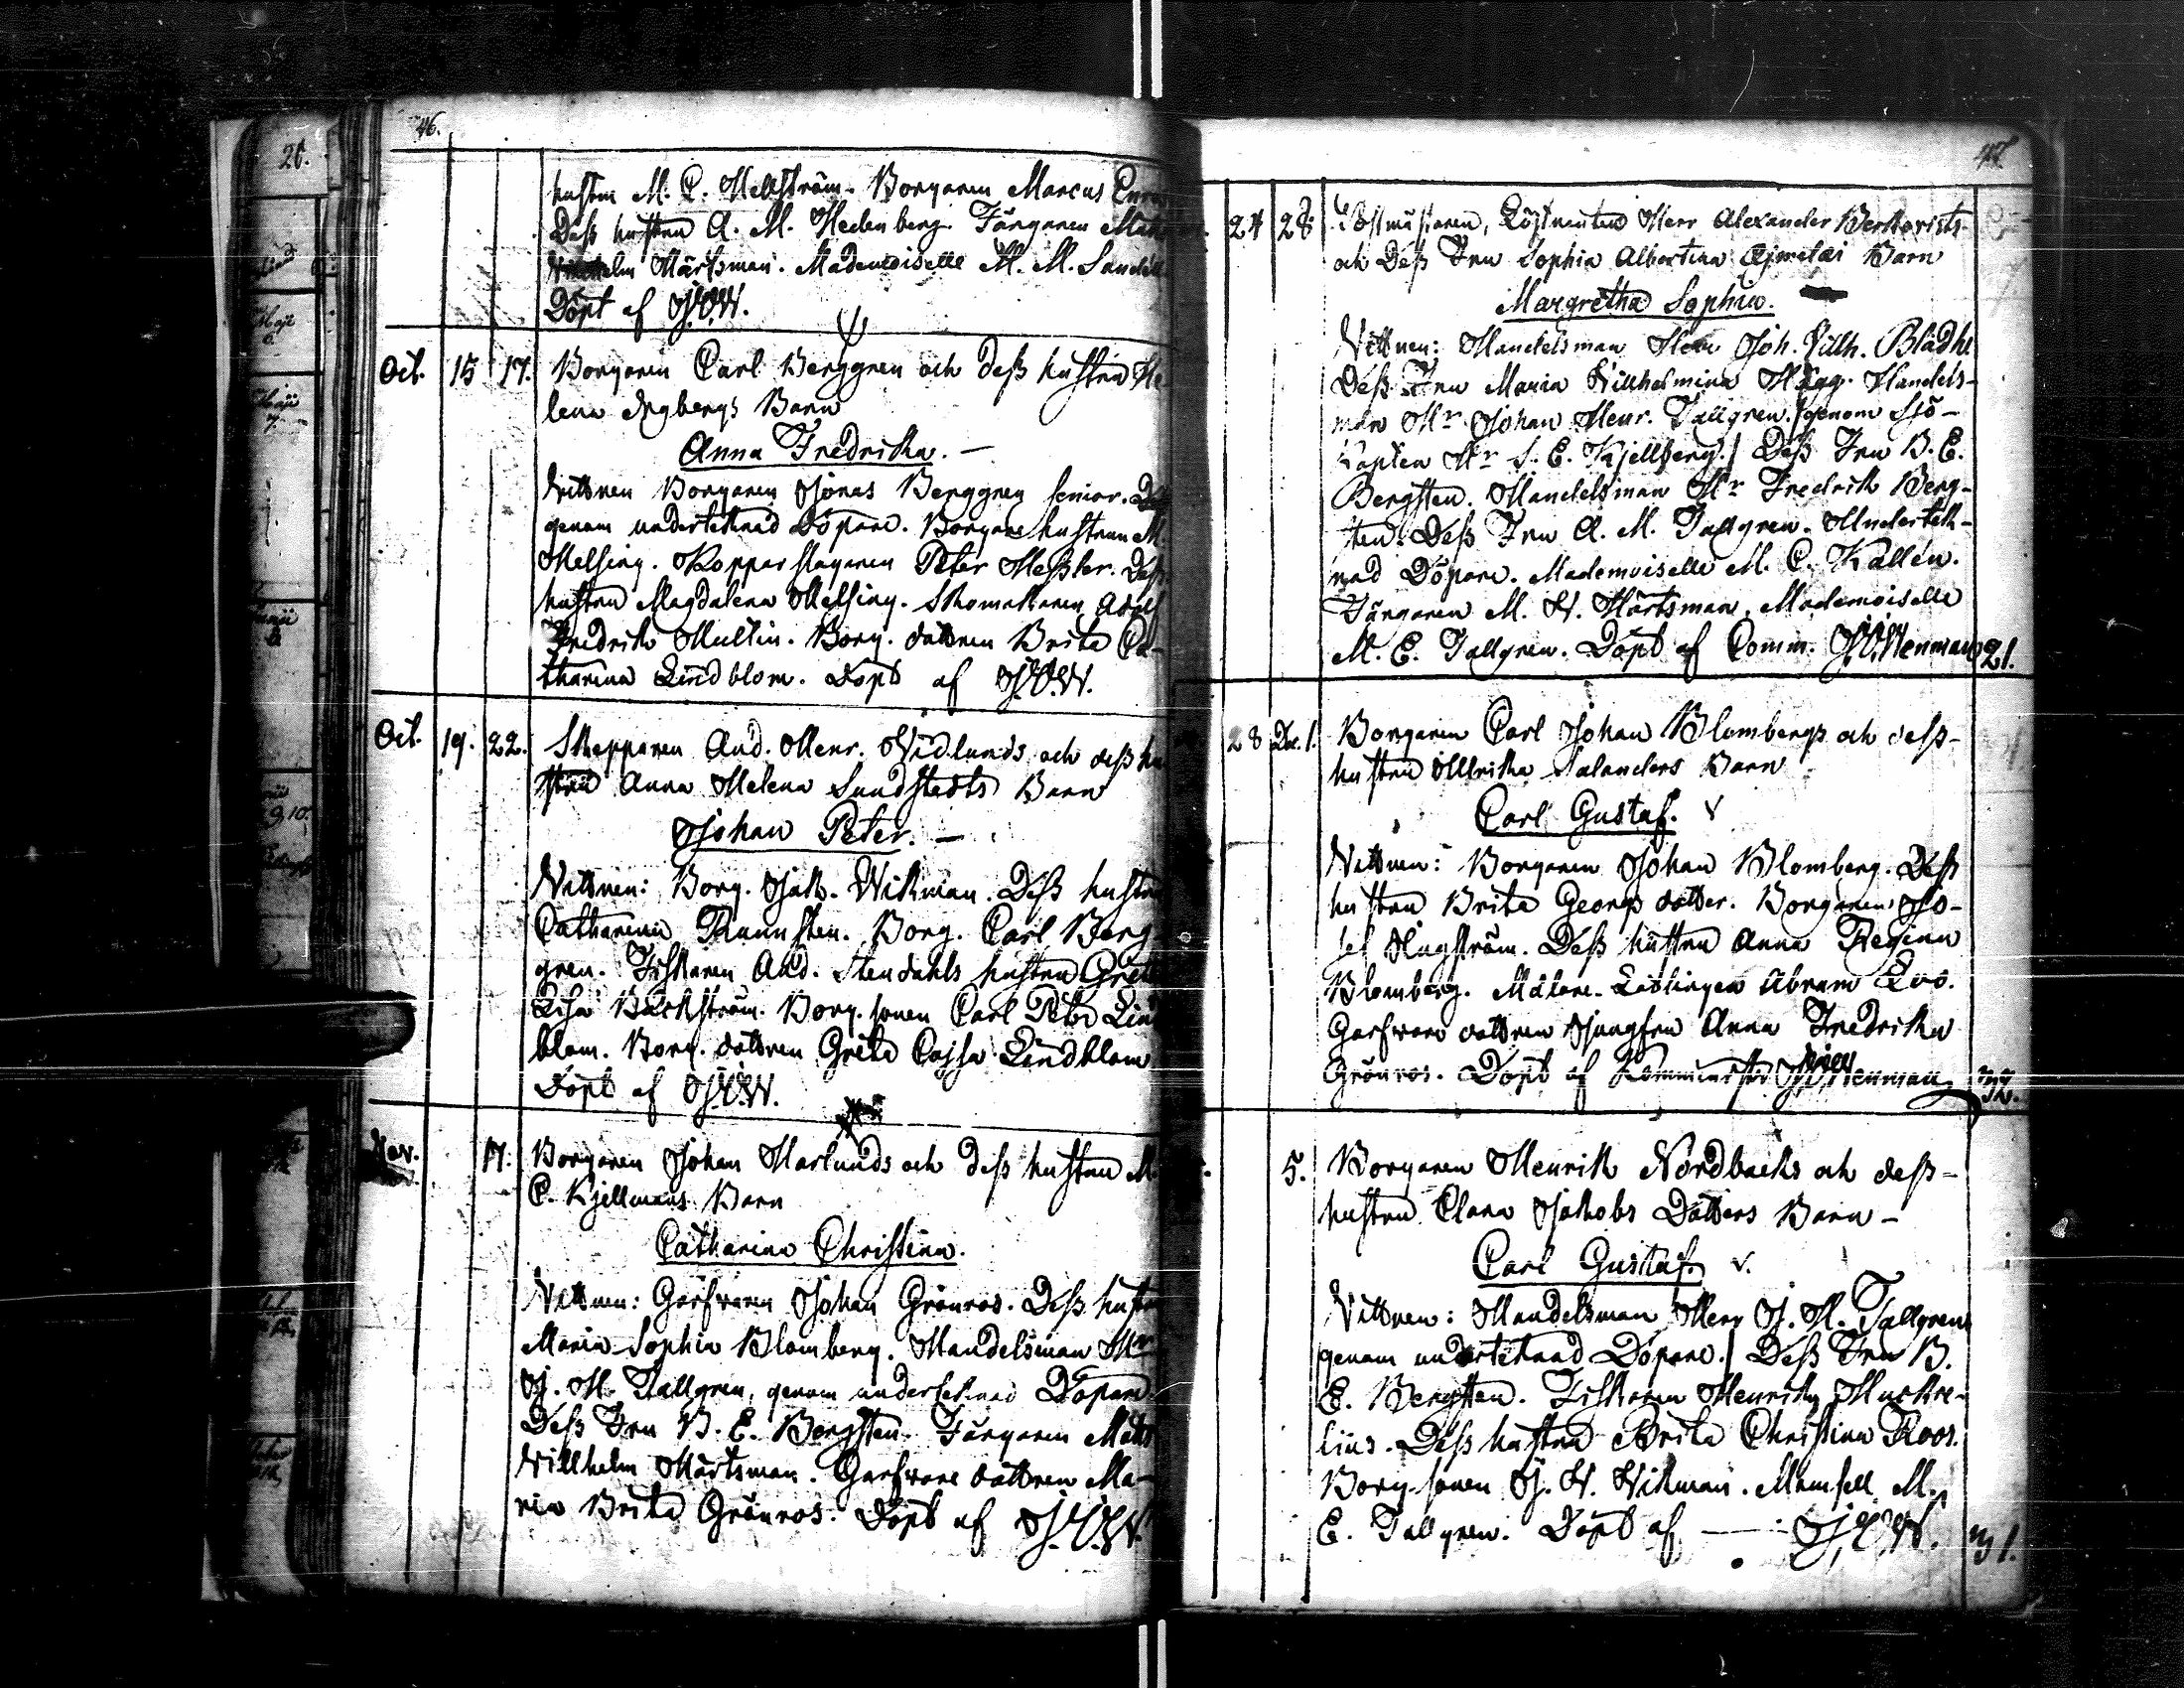 46.
hustru M. C. Hellström. Borgaren Marcus
Dess hustru A. M. Hedenberg. Färgaren
Härtsman. Mademoiselle M. M.
Döpt af J.V.W.
Oct. 15 17. Borgaren Carl Berggren och dess hustru He
lena Barn
Anna Fredrika. –
Vittnen Borgaren Jonas Berggren senior.
genom undertecknad Döpare. Borgare hustrun M.
Helsing. Kopparslagaren Peter Hessler. Dess
hustru Magdalena Helsing. Skomakaren Adolf
Fredrik Multin. Borg. dottren Brita Ca-
tharina Lindblom. Döpt af J.V.W.
Oct. 19. 22. Skepparen And. Henr. Widlunds och dess hu
stru Anna Helena Sundstedts Barn
Johan Peter. –
Vittnen: Borg. Jak. Wikman. Dess hustru
Catharina Runsten. Borg. Carl Berg
gren. Fiskaren And. Stendahls hustru Greta
Lisa Bäckström. Borg. sonen Carl Petter Lind
blom. Borg. dottren Greta Cajsa Lindblom
Döpt af J.V.W.
Nov. 17. Borgaren Johan Harlunds och dess hustru M.
C. Kjellmans Barn
Catharina Christina.
Vittnen: Garfvaren Johan Grönros. Dess hustru
Maria Sophia Blomberg. Handelsman Hr
J. H. Tallgren, genom undertecknad Döpare.
Dess Fru B. E. Bergsten. Färgaren Matts
Willhelm Härtsman. Garfvare dottren Ma-
ria Brita Grönros. Döpt af J.V.W.
47.
24 28. Postmästaren, Löjtnanten Herr Alexander
och Dess Fru Sophia Albertina Barn
Margretha Sophia.
Vittnen: Handelsman Herr Joh. Vilh. Bladh
Dess Fru Maria Wilhelmina Hägg. Handels-
man Hr Johan Henr. Tallgren, /genom Sjö-
Kapten Hr S. E. Kjellberg./ Dess Fru B. E.
Bergsten. Handelsman Hr Fredrik Berg-
sten. Dess Fru A. M. Tallgren. Underteck-
nad Döpare. Mademoiselle M. C. Kallén.
Färgaren M. W. Härtsman. Mademoiselle
M. E. Tallgren. Döpt af Comm. J.V.Wenman 21.
28 Dec. 1. Borgaren Carl Johan Blombergs och dess-
hustru Ulrika Salanders Barn
Carl Gustaf.
Vittnen: Borgaren Johan Blomberg. Dess
hustru Brita Georgs dotter. Borgaren Jo-
sef Hagström. Dess hustru Anna Regina
Blomberg. Målare-Lärlingen Abram Loo.
Garfvare dottren Jungfru Anna Fredrika
Grönros. Döpt af J.V.Wenman 32.
5. Borgaren Henrik Nordbacks och dess-
hustru Clara Jakobs Dotters Barn –
Carl Gustaf.
Vittnen: Handelsman Herr J. H. Tallgren
genom undertecknad Döpare./ Dess Fru B.
E. Bergsten. Fiskaren Henrik
Dess hustru Brita Christina Roos.
Borg. sonen J. W. Wikman. Mamsell M.
E. Tallgren. Döpt af J.V.W. 31.